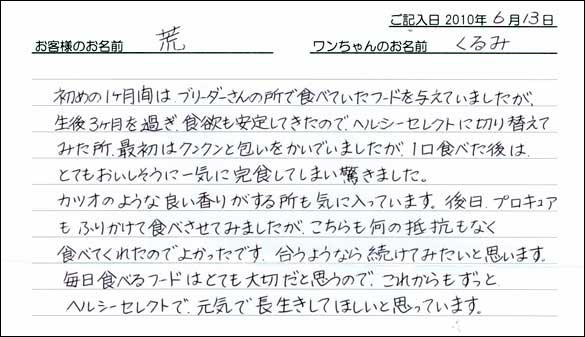 ご記入日 2010年 6月 13日
お客様のお名前 荒 ワンちゃんのお名前 くるみ
初めの1ヶ月間は、ブリーダーさんの所で食べていたフードを与えていましたが、
生後3ヶ月を過ぎ、食欲も安定してきたので、ヘルシーセレクトに切り替えて
みた所、最初はクンクンと匂いをかいでいましたが、1口食べた後は、
とてもおいしそうに一気に完食してしまい驚きました。
カツオのような良い香りがする所も気に入っています。後日、プロキュア
も ふりかけて食べさせてみましたが、こちらも何の抵抗もなく
食べてくれたのでよかったです。合うようなら続けてみたいと思います。
毎日食べるフードはとても大切だと思うので、これからもずっと
ヘルシーセレクトで、元気で長生きしてほしいと思っています。